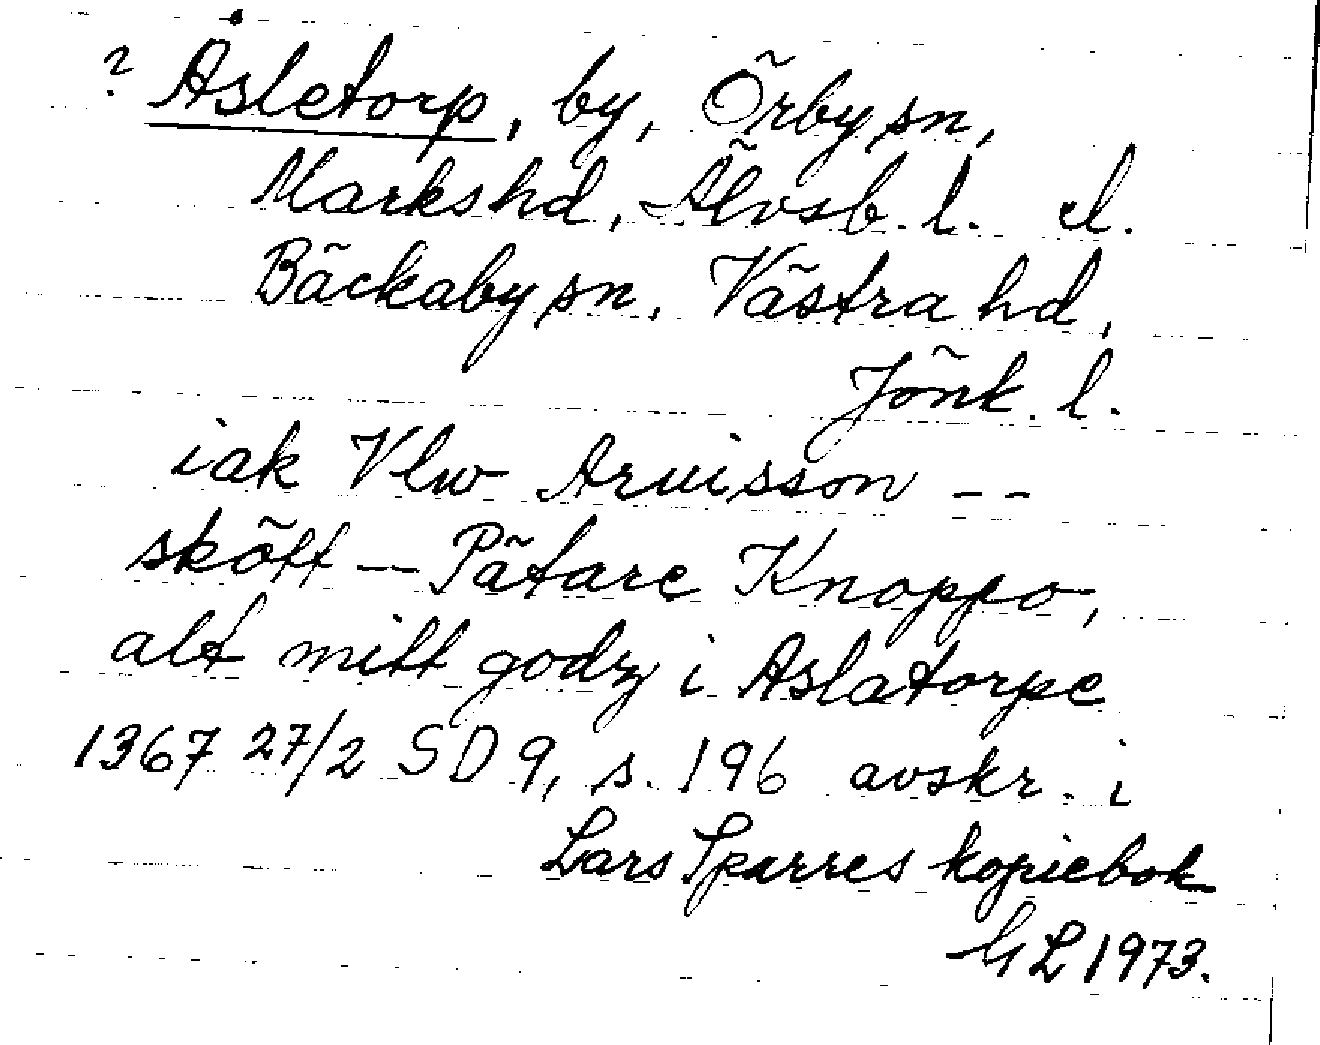 ? Åsletorp, by, Örby sn,
Marks hd, Älvsb. l. el.
Bäckaby sn, Västra hd,
Jönk. l.
iak Vlw Aruisson --
skött — Pätare Knoppo,
alt mitt godz i Aslatorpe
1367 27/2 SD 9, s. 196 avskr. i
Lars Sparres kopiebok
GL 1973.